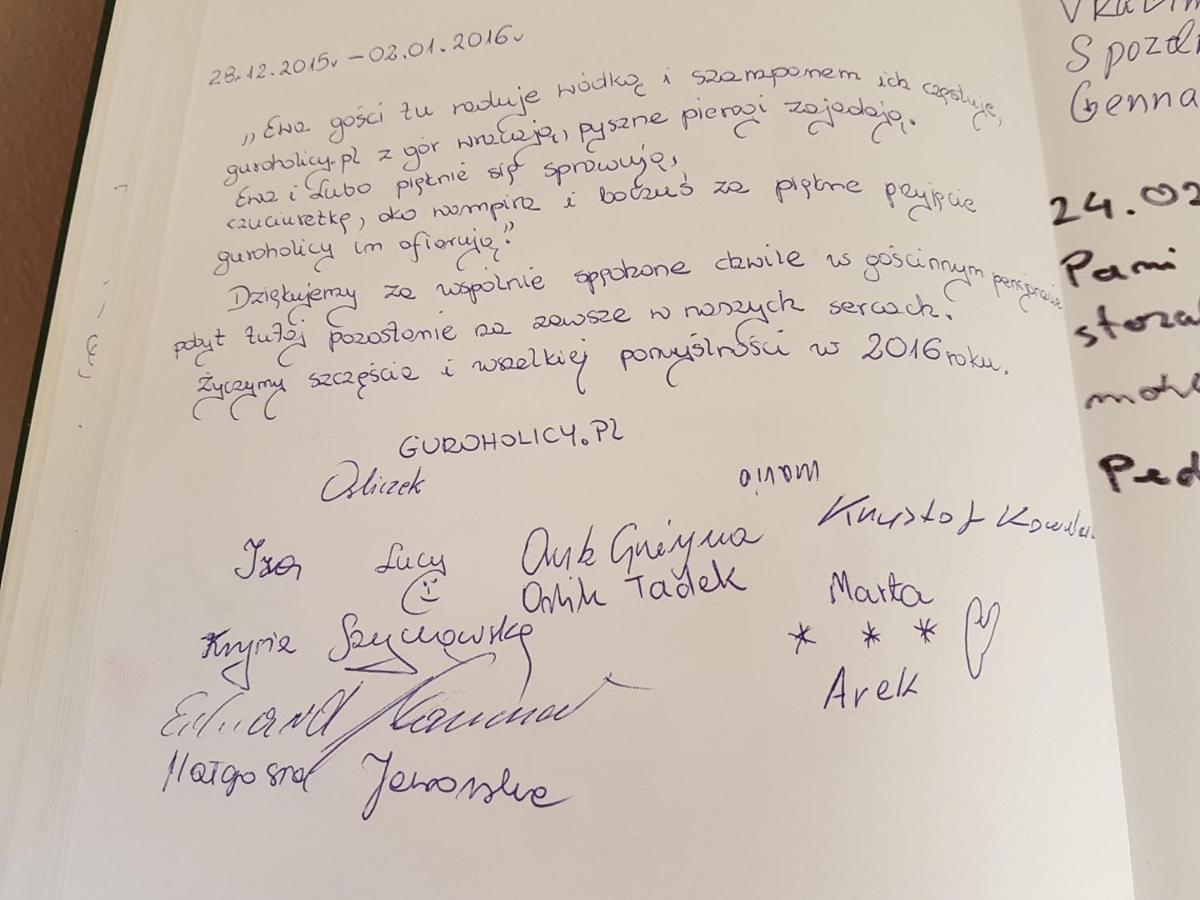 28.12.2015r – 02.01.2016r
„Ewa gości tu raduje wódką i szamponem ich częstuje,
guroholicy.pl z gór wracają, pyszne pierogi zajadają.
Ewa i Lubo pięknie się sprawują,
czuciuretkę, oko wampira i boczuś za piękne przyjęcie
guroholicy im ofiarują."
Dziękujemy za wspólnie spędzone chwile w gościnnym pensjonacie
pobyt tutaj pozostanie na zawsze w naszych sercach.
Życzymy szczęścia i wszelkiej pomyślności w 2016 roku.
GUROHOLICY.PL
Osliczek
Mario
Krzysztof
Iza Lucy Grażyna
Tadek
Marta
Krysia
* * *
Edward
Arek
Małgosia Jaworska
Spozd
Genna
24.02
Pami
storza
Ped